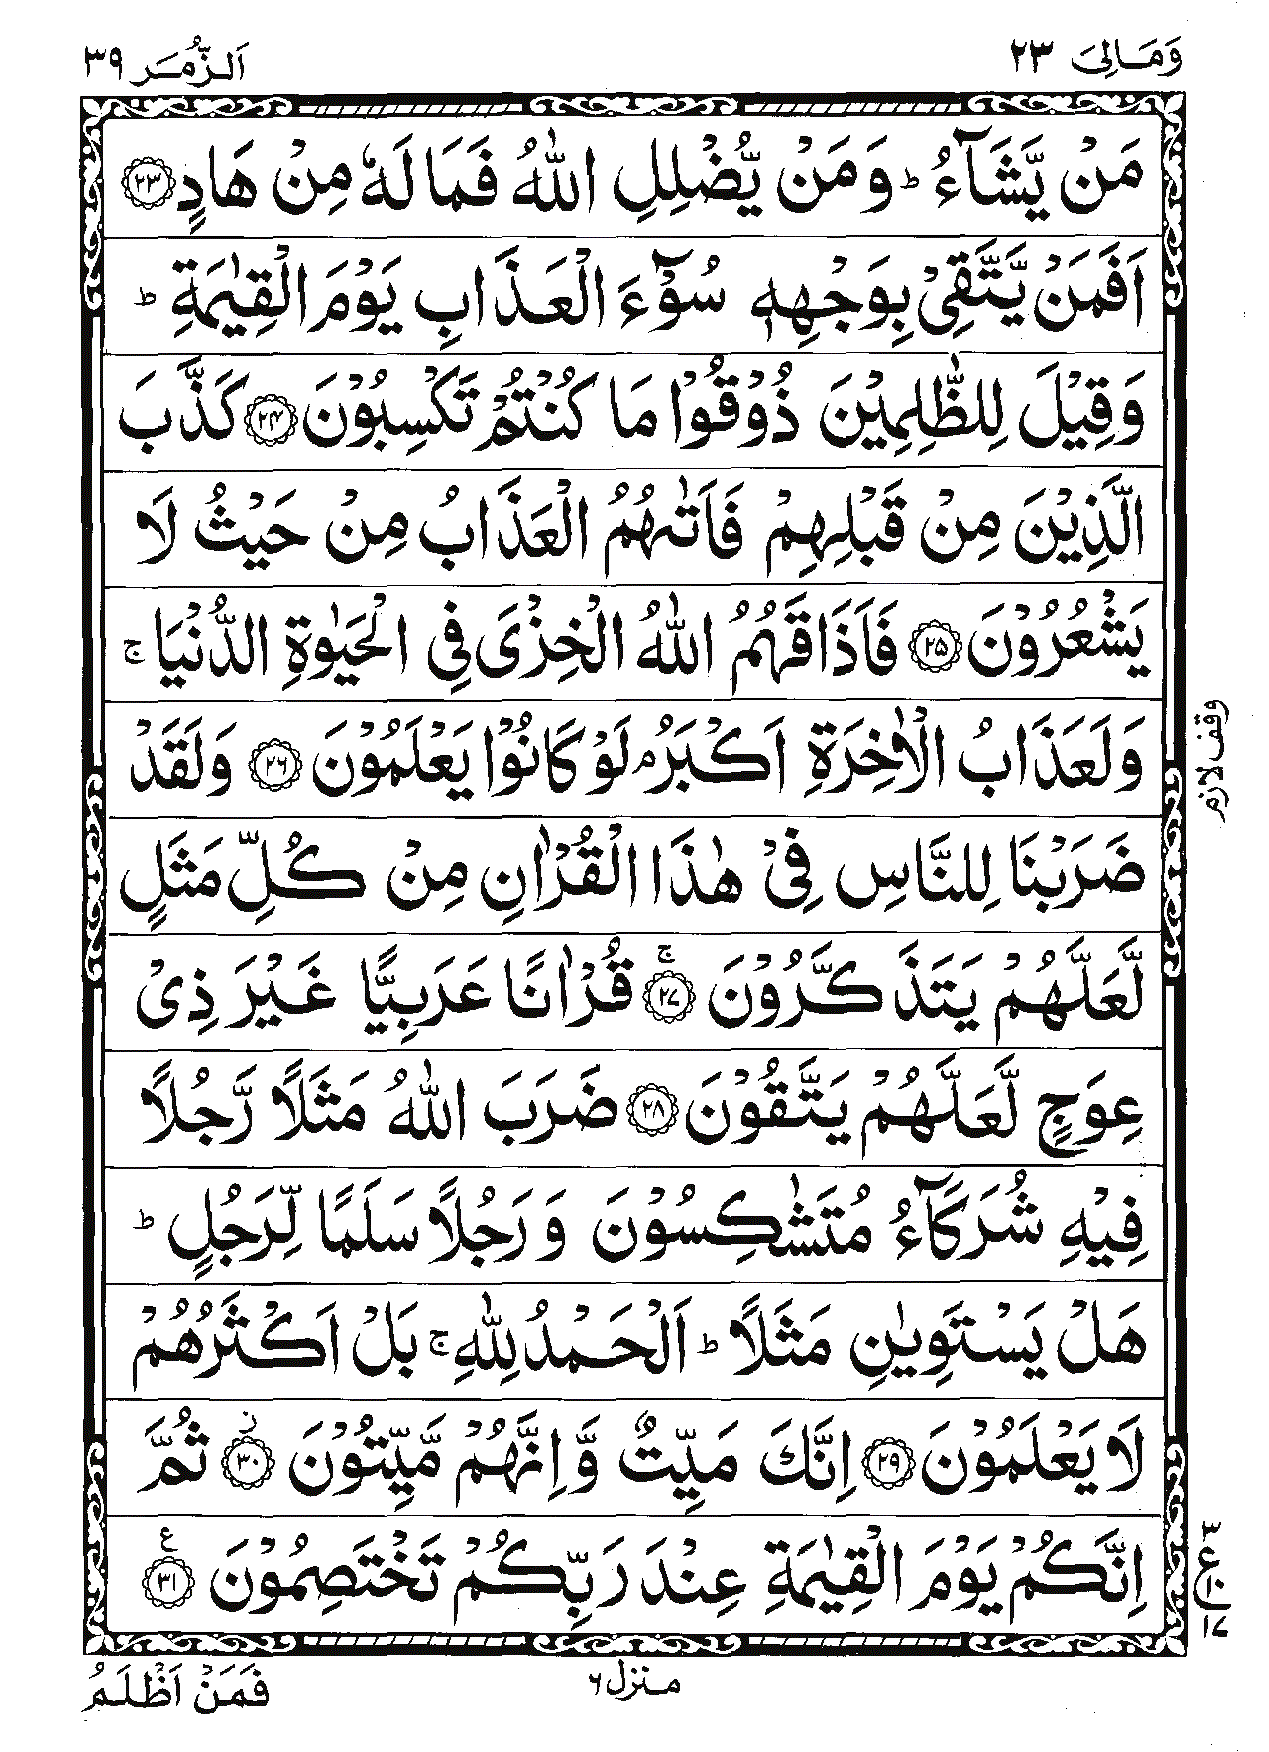 وَمَالِىَ ٢٣
اَلزُّمَر ٣٩
مَنْ يَّشَآءُ ؕ وَمَنْ يُّضْلِلِ اللّٰهُ فَمَا لَهٗ مِنْ هَادٍ ﴿٢٣﴾
اَفَمَنْ يَّتَّقِىْ بِوَجْهِهٖ سُوْٓءَ الْعَذَابِ يَوْمَ الْقِيٰمَةِ ؕ
وَقِيْلَ لِلظّٰلِمِيْنَ ذُوْقُوْا مَا كُنْتُمْ تَكْسِبُوْنَ ﴿٢٤﴾ كَذَّبَ
الَّذِيْنَ مِنْ قَبْلِهِمْ فَاَتٰٮهُمُ الْعَذَابُ مِنْ حَيْثُ لَا
يَشْعُرُوْنَ ﴿٢٥﴾ فَاَذَاقَهُمُ اللّٰهُ الْخِزْىَ فِى الْحَيٰوةِ الدُّنْيَا ۚ
وَلَعَذَابُ الْاٰخِرَةِ اَكْبَرُ ۘ لَوْ كَانُوْا يَعْلَمُوْنَ ﴿٢٦﴾ وَلَقَدْ
وقف لازم
ضَرَبْنَا لِلنَّاسِ فِىْ هٰذَا الْقُرْاٰنِ مِنْ كُلِّ مَثَلٍ
لَّعَلَّهُمْ يَتَذَكَّرُوْنَ ۚ﴿٢٧﴾ قُرْاٰنًا عَرَبِيًّا غَيْرَ ذِىْ
عِوَجٍ لَّعَلَّهُمْ يَتَّقُوْنَ ﴿٢٨﴾ ضَرَبَ اللّٰهُ مَثَلًا رَّجُلًا
فِيْهِ شُرَكَآءُ مُتَشٰكِسُوْنَ وَ رَجُلًا سَلَمًا لِّرَجُلٍ ؕ
هَلْ يَسْتَوِيٰنِ مَثَلًا ؕ اَلْحَمْدُ لِلّٰهِ ۚ بَلْ اَكْثَرُهُمْ
لَا يَعْلَمُوْنَ ﴿٢٩﴾ اِنَّكَ مَيِّتٌ وَّاِنَّهُمْ مَّيِّتُوْنَ ز﴿٣٠﴾ ثُمَّ
اِنَّكُمْ يَوْمَ الْقِيٰمَةِ عِنْدَ رَبِّكُمْ تَخْتَصِمُوْنَ ع﴿٣١﴾
٣
ع
١٠
١٧
منزل ٦
فَمَنْ اَظْلَمُ